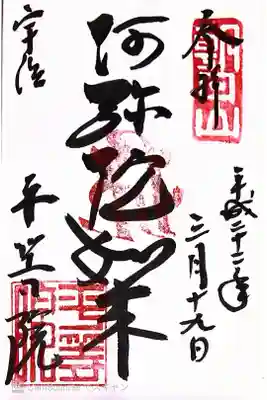 奉拝
平成二十二年
三月十九日
阿弥陀如来
宇治
平等院
朝日山